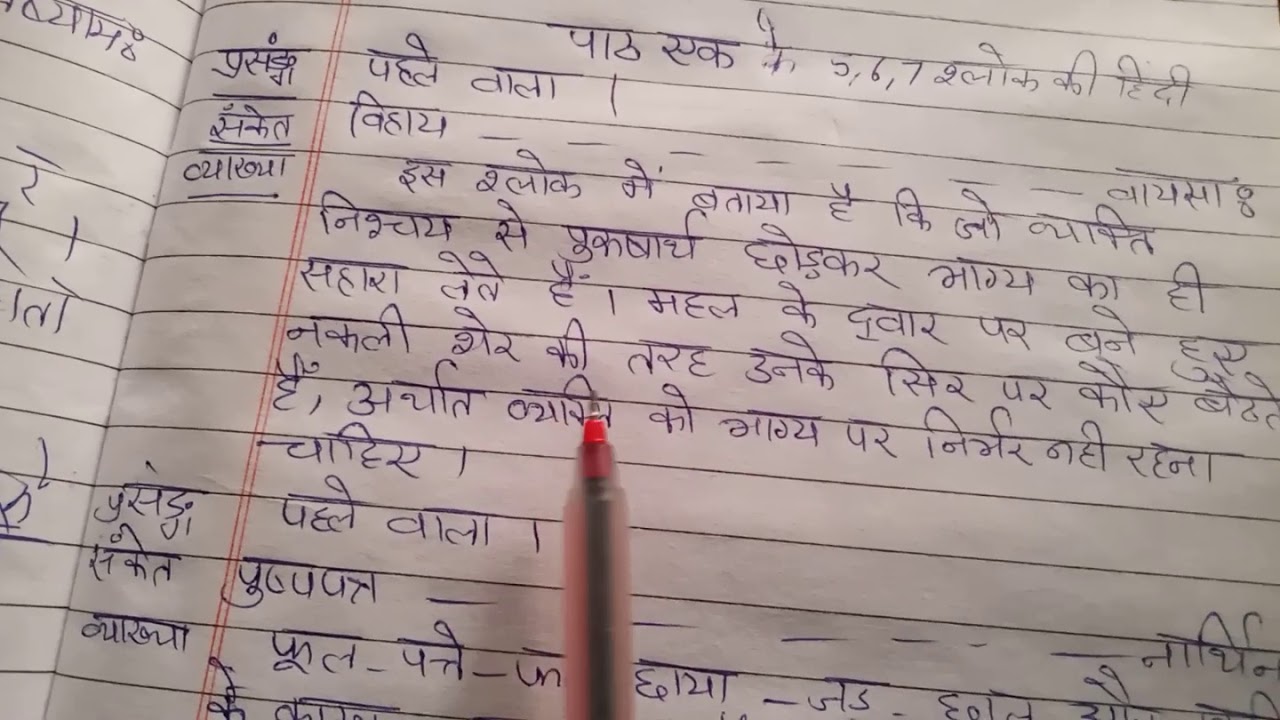 पाठ एक के 5,6,7 श्लोक की हिंदी
प्रसंङ्ग पहले वाला ।
संकेत विहाय — — — — — — — वायसाः
व्याख्या इस श्लोक में बताया है कि जो व्यक्ति
निश्चय से पुरुषार्थ छोड़कर भाग्य का ही
सहारा लेते हैं । महल के द्वार पर बने हुए
नकली शेर की तरह उनके सिर पर कौए बैठते
हैं, अर्थात व्यक्ति को भाग्य पर निर्भर नही रहना
चाहिए ।
प्रसंङ्ग पहले वाला ।
संकेत पुष्पपत्र — — — — — — नार्थिन
व्याख्या फूल-पत्ते- छाया -जड़-
के